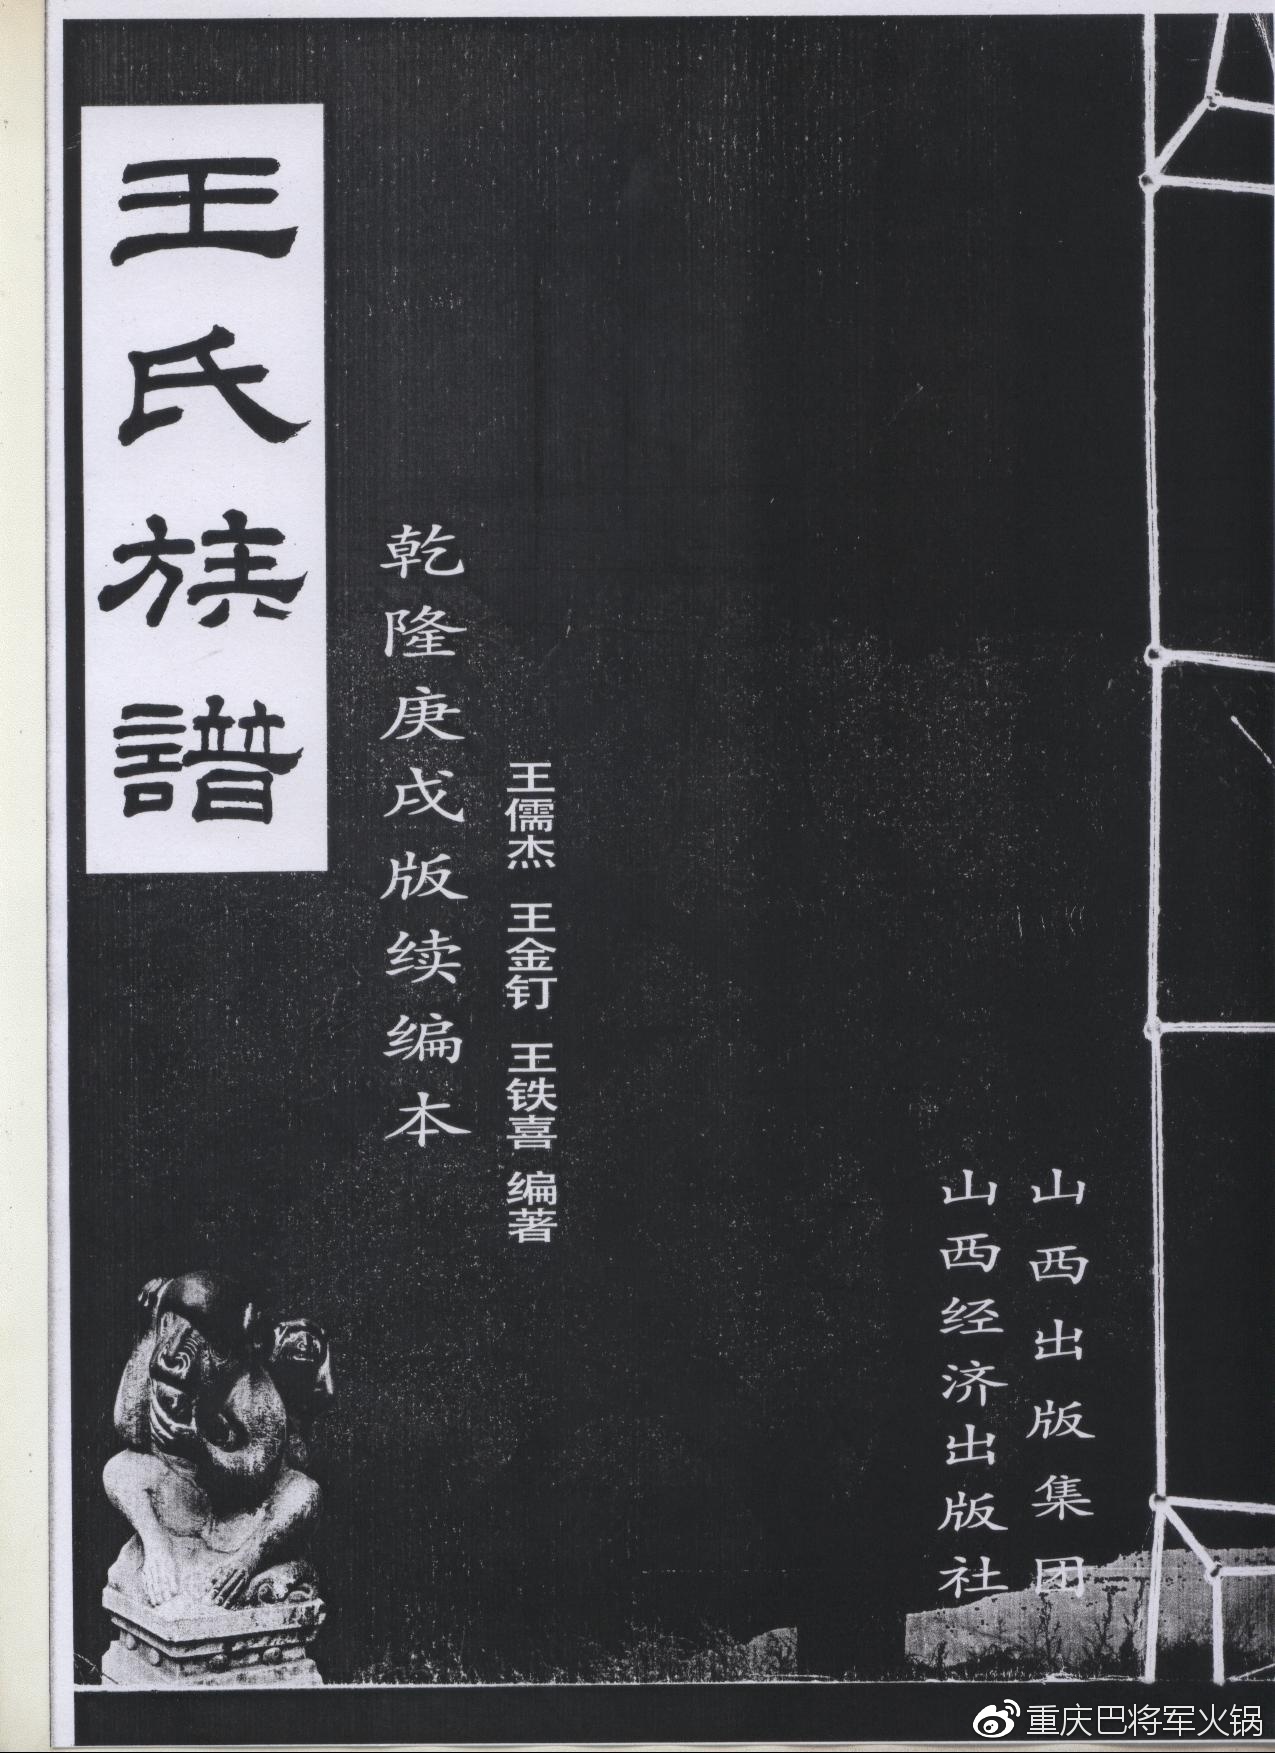 王氏族譜
乾隆庚戌版续编本
王儒杰 王金钉 王铁喜 编著
山西出版集团
山西经济出版社
重庆巴将军火锅